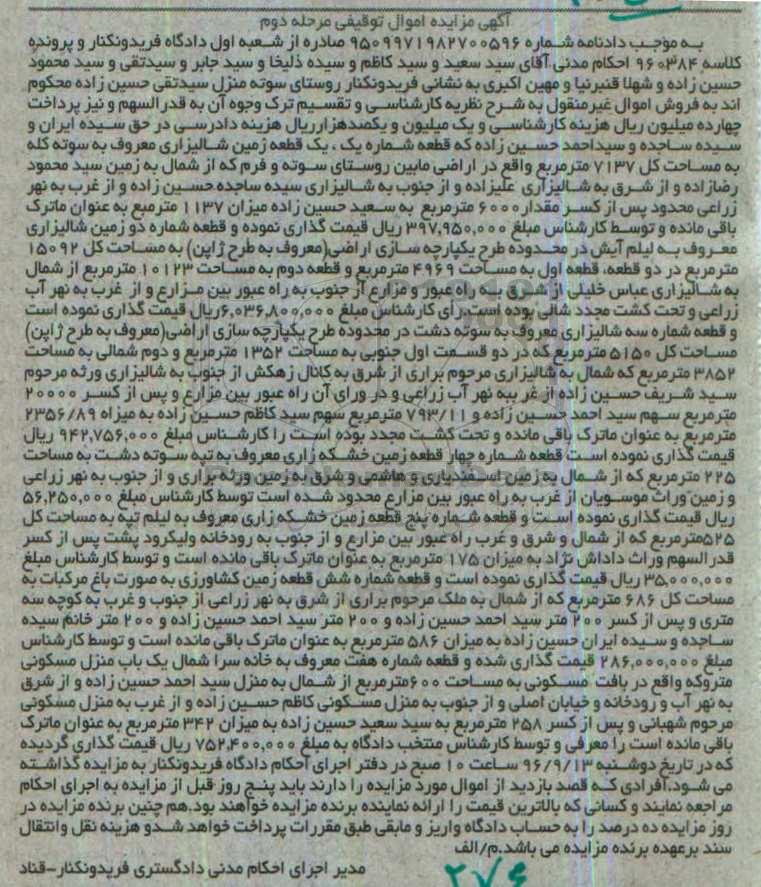 آگهی مزایده اموال توقیفی مرحله دوم
به موجب دادنامه شماره ۹۵۰۹۹۷۱۹۸۲۷۰۰۵۹۶ صادره از شعبه اول دادگاه فریدونکنار و پرونده
کلاسه ۹۶۰۳۸۴ احکام مدنی آقای سید سعید و سید کاظم و سیده ذلیخا و سید جابر و سیدتقی و سید محمود
حسین زاده و شهلا قنبرنیا و مهین اکبری به نشانی فریدونکنار روستای سوته منزل سیدتقی حسین زاده محکوم
اند به فروش اموال غیرمنقول به شرح نظریه کارشناسی و تقسیم ترک وجوه آن به قدرالسهم و نیز پرداخت
چهارده میلیون ریال هزینه کارشناسی و یک میلیون و یکصدهزارریال هزینه دادرسی در حق سیده ایران و
سیده ساجده و سیداحمد حسین زاده که قطعه شماره یک ، یک قطعه زمین شالیزاری معروف به سوته کله
به مساحت کل ۷۱۳۷ مترمربع واقع در اراضی مابین روستای سوته و فرم که از شمال به زمین سید محمود
رضازاده و از شرق به شالیزاری علیزاده و از جنوب به شالیزاری سیده ساجده حسین زاده و از غرب به نهر
زراعی محدود پس از کسر مقدار ۶۰۰۰ مترمربع به سعید حسین زاده میزان ۱۱۳۷ مترمبع به عنوان ماترک
باقی مانده و توسط کارشناس مبلغ ۳۹۷,۹۵۰,۰۰۰ ریال قیمت گذاری نموده و قطعه شماره دو زمین شالیزاری
معروف به لیلم آیش در محدوده طرح یکپارچه سازی اراضی(معروف به طرح ژاپن) به مساحت کل ۱۵۰۹۲
مترمربع در دو قطعه، قطعه اول به مساحت ۴۹۶۹ مترمربع و قطعه دوم به مساحت ۱۰۱۲۳ مترمربع از شمال
به شالیزاری عباس خلیلی از شرق به راه عبور و مزارع از جنوب به راه عبور بین مزارع و از غرب به نهر آب
زراعی و تحت کشت مجدد شالی بوده است.رأی کارشناس مبلغ ۶,۰۳۶,۸۰۰,۰۰۰ریال قیمت گذاری نموده است
و قطعه شماره سه شالیزاری معروف به سوته دشت در محدوده طرح یکپارچه سازی اراضی(معروف به طرح ژاپن)
مساحت کل ۵۱۵۰ مترمربع که در دو قسمت اول جنوبی به مساحت ۱۳۵۲ مترمربع و دوم شمالی به مساحت
۳۸۵۲ مترمربع که شمال به شالیزاری مرحوم براری از شرق به کانال زهکش از جنوب به شالیزاری ورثه مرحوم
سید شریف حسین زاده از غر ببه نهر آب زراعی و در ورای آن راه عبور بین مزارع و پس از کسر ۲۰۰۰۰
مترمربع سهم سید احمد حسین زاده و ۷۹۳/۱۱ مترمربع سهم سید کاظم حسین زاده به میزاه ۲۳۵۶/۸۹
مترمربع به عنوان ماترک باقی مانده و تحت کشت مجدد بوده است را کارشناس مبلغ ۹۴۲,۷۵۶,۰۰۰ ریال
قیمت گذاری نموده است قطعه شماره چهار قطعه زمین خشکه زاری معروف به تپه سوته دشت به مساحت
۲۲۵ مترمربع که از شمال به زمین اسفندیاری و هاشمی و شرق به زمین ورثه براری و از جنوب به نهر زراعی
و زمین وراث موسویان از غرب به راه عبور بین مزارع محدود شده است توسط کارشناس مبلغ ۵۶,۲۵۰,۰۰۰
ریال قیمت گذاری نموده است و قطعه شماره پنج قطعه زمین خشکه زاری معروف به لیلم تپه به مساحت کل
۵۲۵مترمربع که از شمال و شرق و غرب راه عبور بین مزارع و از جنوب به رودخانه ولیکرود پشت پس از کسر
قدرالسهم وراث داداش نژاد به میزان ۱۷۵ مترمربع به عنوان ماترک باقی مانده است و توسط کارشناس مبلغ
۳۵,۰۰۰,۰۰۰ ریال قیمت گذاری نموده است و قطعه شماره شش قطعه زمین کشاورزی به صورت باغ مرکبات به
مساحت کل ۶۸۶ مترمربع که از شمال به ملک مرحوم براری از شرق به نهر زراعی از جنوب و غرب به کوچه سه
متری و پس از کسر ۲۰۰ متر سید احمد حسین زاده و ۲۰۰ متر سید احمد حسین زاده و ۲۰۰ متر خانم سیده
ساجده و سیده ایران حسین زاده به میزان ۵۸۶ مترمربع به عنوان ماترک باقی مانده است و توسط کارشناس
مبلغ ۲۸۶,۰۰۰,۰۰۰ قیمت گذاری شده و قطعه شماره هفت معروف به خانه سرا شمال یک باب منزل مسکونی
متروکه واقع در بافت مسکونی به مساحت ۶۰۰مترمربع از شمال به منزل سید احمد حسین زاده و از شرق
به نهر آب و رودخانه و خیابان اصلی و از جنوب به منزل مسکونی کاظم حسین زاده و از غرب به منزل مسکونی
مرحوم شهبانی و پس از کسر ۲۵۸ مترمربع به سید سعید حسین زاده به میزان ۳۴۲ مترمربع به عنوان ماترک
باقی مانده است را معرفی و توسط کارشناس منتخب دادگاه به مبلغ ۷۵۲,۴۰۰,۰۰۰ ریال قیمت گذاری گردیده
که در تاریخ دوشنبه ۹۶/۹/۱۳ ساعت ۱۰ صبح در دفتر اجرای احکام دادگاه فریدونکنار به مزایده گذاشته
می شود.افرادی که قصد بازدید از اموال مورد مزایده را دارند باید پنج روز قبل از مزایده به اجرای احکام
مراجعه نمایند و کسانی که بالاترین قیمت را ارائه نماینده برنده مزایده خواهند بود.هم چنین برنده مزایده در
روز مزایده ده درصد را به حساب دادگاه واریز و مابقی طبق مقررات پرداخت خواهد شدو هزینه نقل وانتقال
سند برعهده برنده مزایده می باشد.م/الف
مدیر اجرای احکام مدنی دادگستری فریدونکنار-قناد
۲۷۶